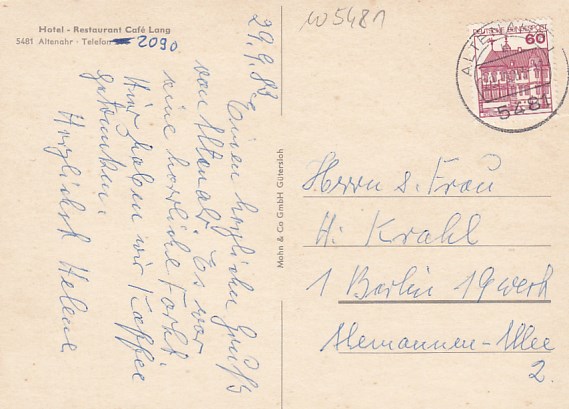 Hotel - Restaurant Café Lang
5481 Altenahr · Telefon 2090
29.9.83
Einen herzlichen Gruß
von Altenahr. Es war
eine herrliche Fahrt.
Hier haben wir Kaffee
getrunken.
Herzlichst Helene
Mohn & Co GmbH Gütersloh
W5481
DEUTSCHE BUNDESPOST
60
5481
Herrn u. Frau
H. Krahl
1 Berlin 19 West
Alemannen-Allee
2.